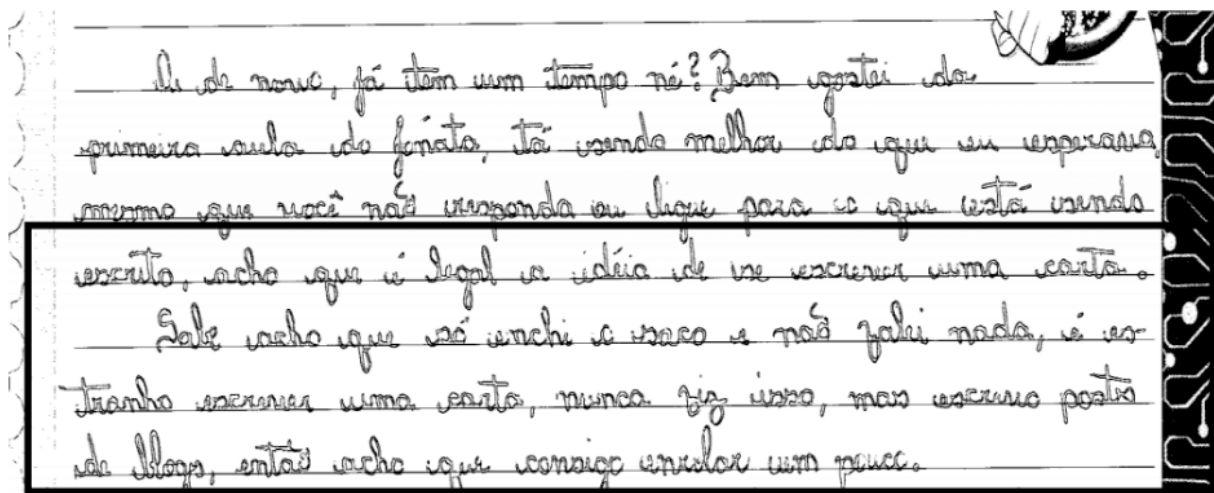 Oi de novo, já tem um tempo né? Bem gostei da
primeira aula do fônato, tá sendo melhor do que eu esperava,
mesmo que você não responda ou ligue para o que está sendo
escrito, acho que é legal a idéia de se escrever uma carta.
Sabe acho que só enchi o saco e não falei nada, é es-
tranho escrever uma carta, nunca fiz isso, mas escrevo posts
de blogs, então acho que consigo enrolar um pouco.